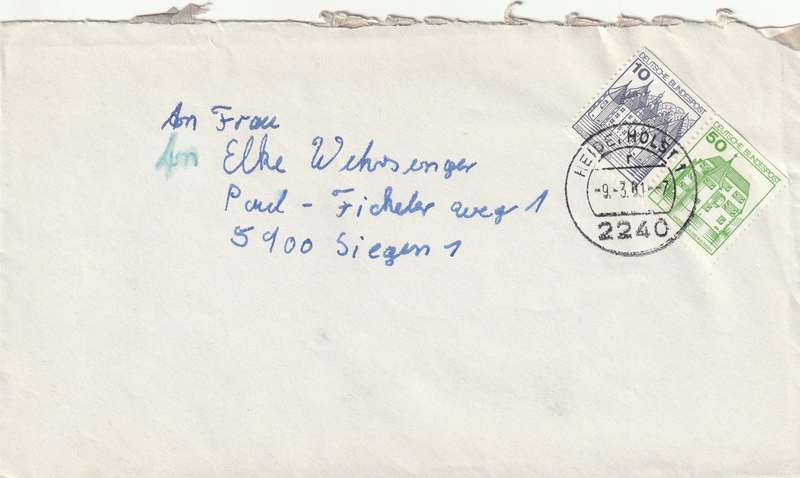 10 DEUTSCHE BUNDESPOST
50 DEUTSCHE BUNDESPOST
HEIDE, HOLST 1
r
-9.-3.81--7
2240
An Frau
An Elke Wehrsenger
Paul - Ficheler weg 1
5900 Siegen 1